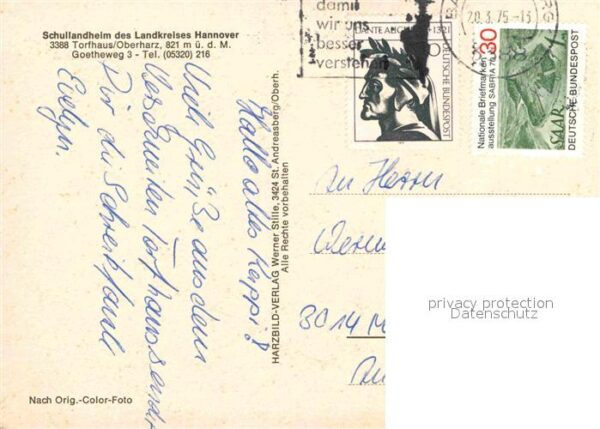 Schullandheim des Landkreises Hannover
3388 Torfhaus/Oberharz, 821 m ü. d. M.
Goetheweg 3 - Tel. (05320) 216
Hallo altes Keppi!
Viele Grüße aus dem
verschneiten Torfhaus sendet
Dir die Schreibfaule
Evelyn.
Nach Orig.-Color-Foto
HARZBILD-VERLAG Werner Stille, 3424 St. Andreasberg/Oberh.
Alle Rechte vorbehalten
damit
wir uns
besser
verstehen
20.3.75-13
DANTE ALIGHIERI 1321
DEUTSCHE BUNDESPOST
30
Nationale Briefmarken-
ausstellung SABRIA 70
SAAR
DEUTSCHE BUNDESPOST
An Herrn
Werner
3014 M
privacy protection
Datenschutz